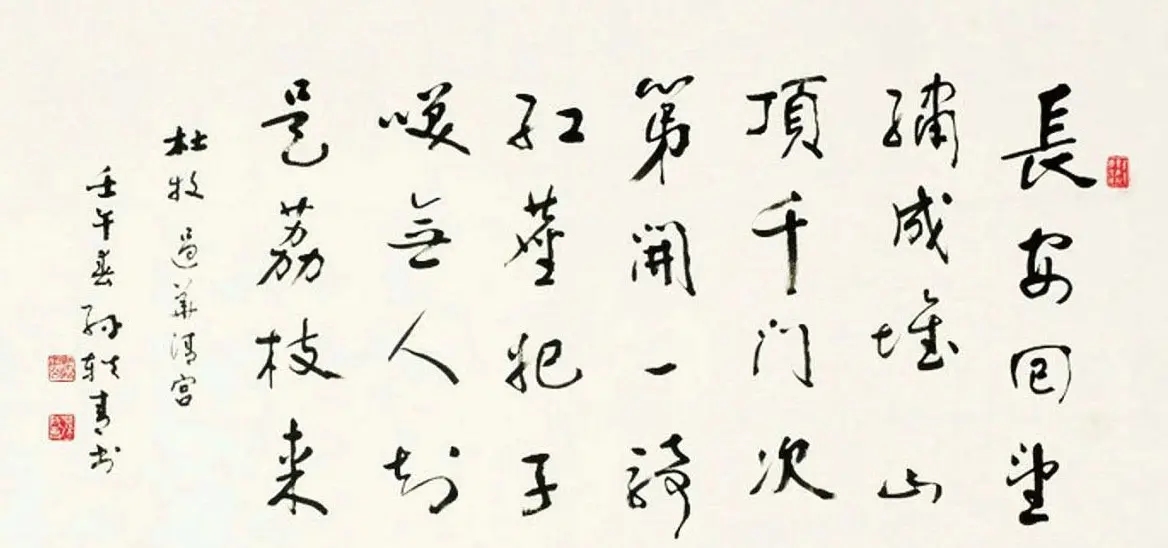 長安回望
繡成堆山
頂千門次
第開一騎
紅塵妃子
咲無人知
是荔枝来
杜牧過華清宮
壬午春孫軼青书